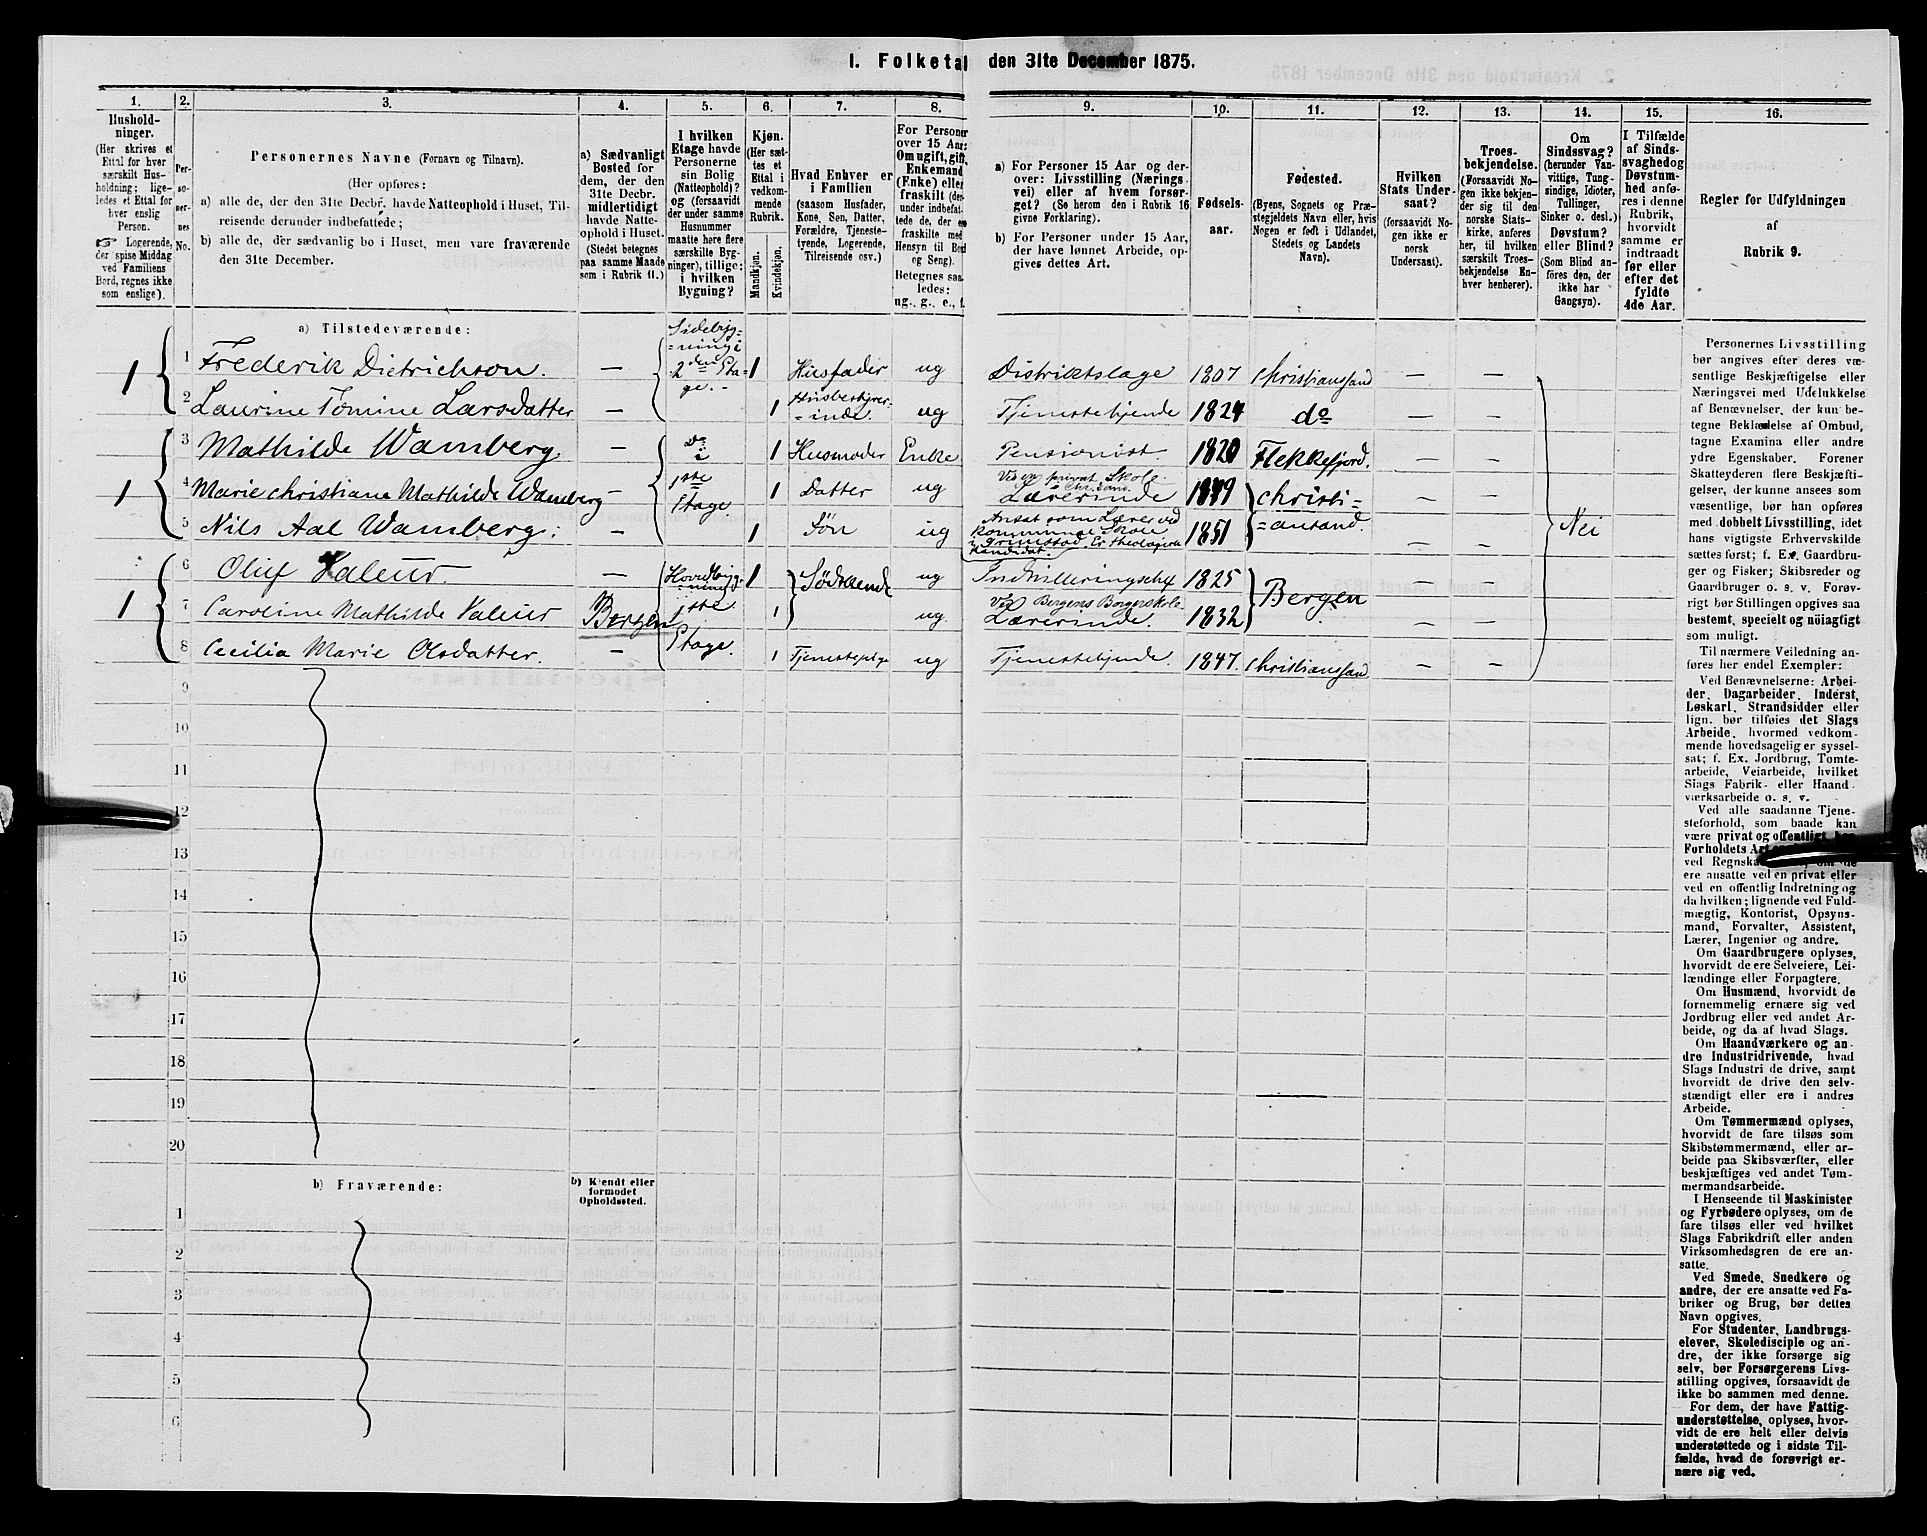 1. Folketal den 31te December 1875.
1. 2. 3. 4. 5. 6. 7. 8. 9. 10. 11. 12. 13. 14. 15. 16.
Hushold-
ninger.
(Her skrives et
Ettal for hver
særskilt Hus-
holdning; lige-
ledes et Ettal for
hver enslig
Person.
☞ Logerende,
der spise Middag
ved Familiens
Bord, regnes ikke
som enslige).
Per-
so-
ner-
nes
No.
Personernes Navne (Fornavn og Tilnavn).
(Her opføres:
a) alle de, der den 31te Decbr. havde Natteophold i Huset, Til-
reisende derunder indbefattede;
b) alle de, der sædvanlig bo i Huset, men vare fraværende
den 31te December.
a) Sædvanligt
Bosted for
dem, der den
31te Decbr.
midlertidigt
havde Natte-
ophold i Huset.
(Stedet betegnes
paa samme Maade
som i Rubrik 11.)
I hvilken
Etage havde
Personerne
sin Bolig
(Natteophold)?
og (forsaavidt
der under samme
Husnummer
maatte høre flere
særskilte Byg-
ninger), tillige:
i hvilken
Bygning?
Kjøn.
(Her sæt-
tes et
Ettal i
vedkom-
mende
Rubrik.
Mandkjøn.
Kvindekjøn.
Hvad Enhver er
i Familien
(saasom Husfader,
Kone, Søn, Datter,
Forældre, Tjeneste-
tyende, Logerende,
Tilreisende osv.)
For Personer
over 15 Aar:
Om ugift, gift,
Enkemand
(Enke) eller
fraskilt (der-
under indbefat-
tede de, der ere
fraskilte med
Hensyn til Bord
og Seng).
Betegnes saa-
ledes:
ug., g., e., f.
a) For Personer 15 Aar og der-
over: Livsstilling (Nærings-
vei) eller af hvem forsør-
get? (Se herom den i Rubrik 16
givne Forklaring).
b) For Personer under 15 Aar,
der have lønnet Arbeide, op-
gives dettes Art.
Fødsels-
aar.
Fødested.
(Byens, Sognets og Præ-
stegjeldets Navn eller, hvis
Nogen er født i Udlandet,
Stedets og Landets
Navn).
Hvilken
Stats Under-
saat?
(forsaavidt No-
gen ikke er
norsk
Undersaat).
Troes-
bekjendelse.
(Forsaavidt No-
gen ikke bekjen-
der sig til den
norske Stats-
kirke, anføres
her, til hvilken
særskilt Troes-
bekjendelse En-
hver henhører).
Om
Sindssvag?
(herunder Van-
vittige, Tung-
sindige, Idioter,
Tullinger,
Sinker o. desl.)
Døvstum?
eller Blind?
(Som Blind an-
føres den, der
ikke har
Gangsyn).
I Tilfælde
af Sinds-
svaghed og
Døvstum-
hed anfø-
res i denne
Rubrik,
hvorvidt
samme er
indtraadt
før eller
efter det
fyldte
4de Aar.
Regler for Udfyldningen
af
Rubrik 9.
a) Tilstedeværende:
1 1 Frederik Dietrichson. — Sidebyg-
-ning i
2den Eta-
ge. 1 Husfader ug Distriktslæge 1807 Christianssand — —
2 Laurine Tomine Larsdatter — 1 Husbestyrer-
-inde. ug Tjenestetyende 1824 do — —
1 3 Mathilde Wamberg — Do i 1 Husmoder Enke Pensionist 1820 Flekkefjord. — —
4 Marie Christiane Mathilde Wamberg — 1ste
Etage. 1 Datter ug Ved en privat Skole
i Chr.sand.
Lærerinde 1849 Christi- — —
5 Nils Aal Wamberg. — 1 Søn ug Ansat som Lærer ved
Kommunne Skole
i Grimstad. Er theologisk
Kandidat. 1851 =ansand. — — Nei
1 6 Oluf Valeur. — Hovedbyg-
-ning 1 Sødskende ug 1825 Bergen — —
7 Caroline Mathilde Valeur Bergen 1ste 1 ug. Ved Bergens Borgerskole
Lærerinde. 1832 — —
8 Cecilia Marie Olsdatter. — Etage. 1 Tjenestepige ug Tjenestetyende. 1847. Christianssand — —
9
10
11
12
13
14
15
16
17
18
19
20
b) Fraværende: b) Kjendt eller
formodet
Opholdssted.
1
2
3
4
5
6
Personernes Livsstilling
bør angives efter deres væ-
sentlige Beskjæftigelse eller
Næringsvei med Udelukkelse
af Benævnelser, der kun be-
tegne Beklædelse af Ombud,
tagne Examina eller andre
ydre Egenskaber. Forener
Skatteyderen flere Beskjæfti-
gelser, der kunne ansees som
væsentlige, bør han opføres
med dobbelt Livsstilling, idet
hans vigtigste Erhvervskilde
sættes først; f. Ex. Gaardbru-
ger og Fisker; Skibsreder og
Gaardbruger o. s. v. Forøv-
rigt bør Stillingen opgives saa
bestemt, specielt og nöiagtigt
som muligt.
Til nærmere Veiledning an-
føres her endel Exempler:
Ved Benævnelserne: Arbei-
der, Dagarbeider, Inderst,
Løskarl, Strandsidder eller
lign. bør tilføies det Slags
Arbeide, hvormed vedkom-
mende hovedsagelig er syssel-
sat; f. Ex. Jordbrug, Tomte-
arbeide, Veiarbeide, hvilket
Slags Fabrik- eller Haand-
værksarbeide o. s. v.
Ved alle saadanne Tjene-
steforhold, som baade kan
være privat og offentligt, bør
Forholdets Art
ved Regnska
ere ansatte ved en privat eller
ved en offentlig Indretning og
da hvilken; lignende ved Fuld-
mægtig, Kontorist, Opsyns-
mand, Forvalter, Assistent,
Lærer, Ingeniør og andre.
Om Gaardbrugere oplyses,
hvorvidt de ere Selveiere, Lei-
lændinge eller Forpagtere.
Om Husmænd, hvorvidt de
fornemmelig ernære sig ved
Jordbrug eller ved andet Ar-
beide, og da af hvad Slags.
Om Haandværkere og an-
dre Industridrivende, hvad
Slags Industri de drive, samt
hvorvidt de drive den selv-
stændigt eller ere i andres
Arbeide.
Om Tømmermænd oplyses,
hvorvidt de fare tilsøs som
Skibstømmermænd, eller ar-
beide paa Skibsværfter, eller
beskjæftiges ved andet Tøm-
mermandsarbeide.
I Henseende til Maskinister
og Fyrbødere oplyses, om de
fare tilsøs eller ved hvilket
Slags Fabrikdrift eller anden
Virksomhedsgren de ere an-
satte.
Ved Smede, Snedkere og
andre, der ere ansatte ved Fa-
briker og Brug, bør dettes
Navn opgives.
For Studenter, Landbrugs-
elever, Skoledisciple og an-
dre, der ikke forsørge sig
selv, bør Forsørgerens Livs-
stilling opgives, forsaavidt de
ikke bo sammen med denne.
For dem, der have Fattig-
understøttelse, oplyses, hvor-
vidt de ere helt eller delvis
understøttede og i sidste Til-
fælde, hvad de forøvrigt er-
nære sig ved.